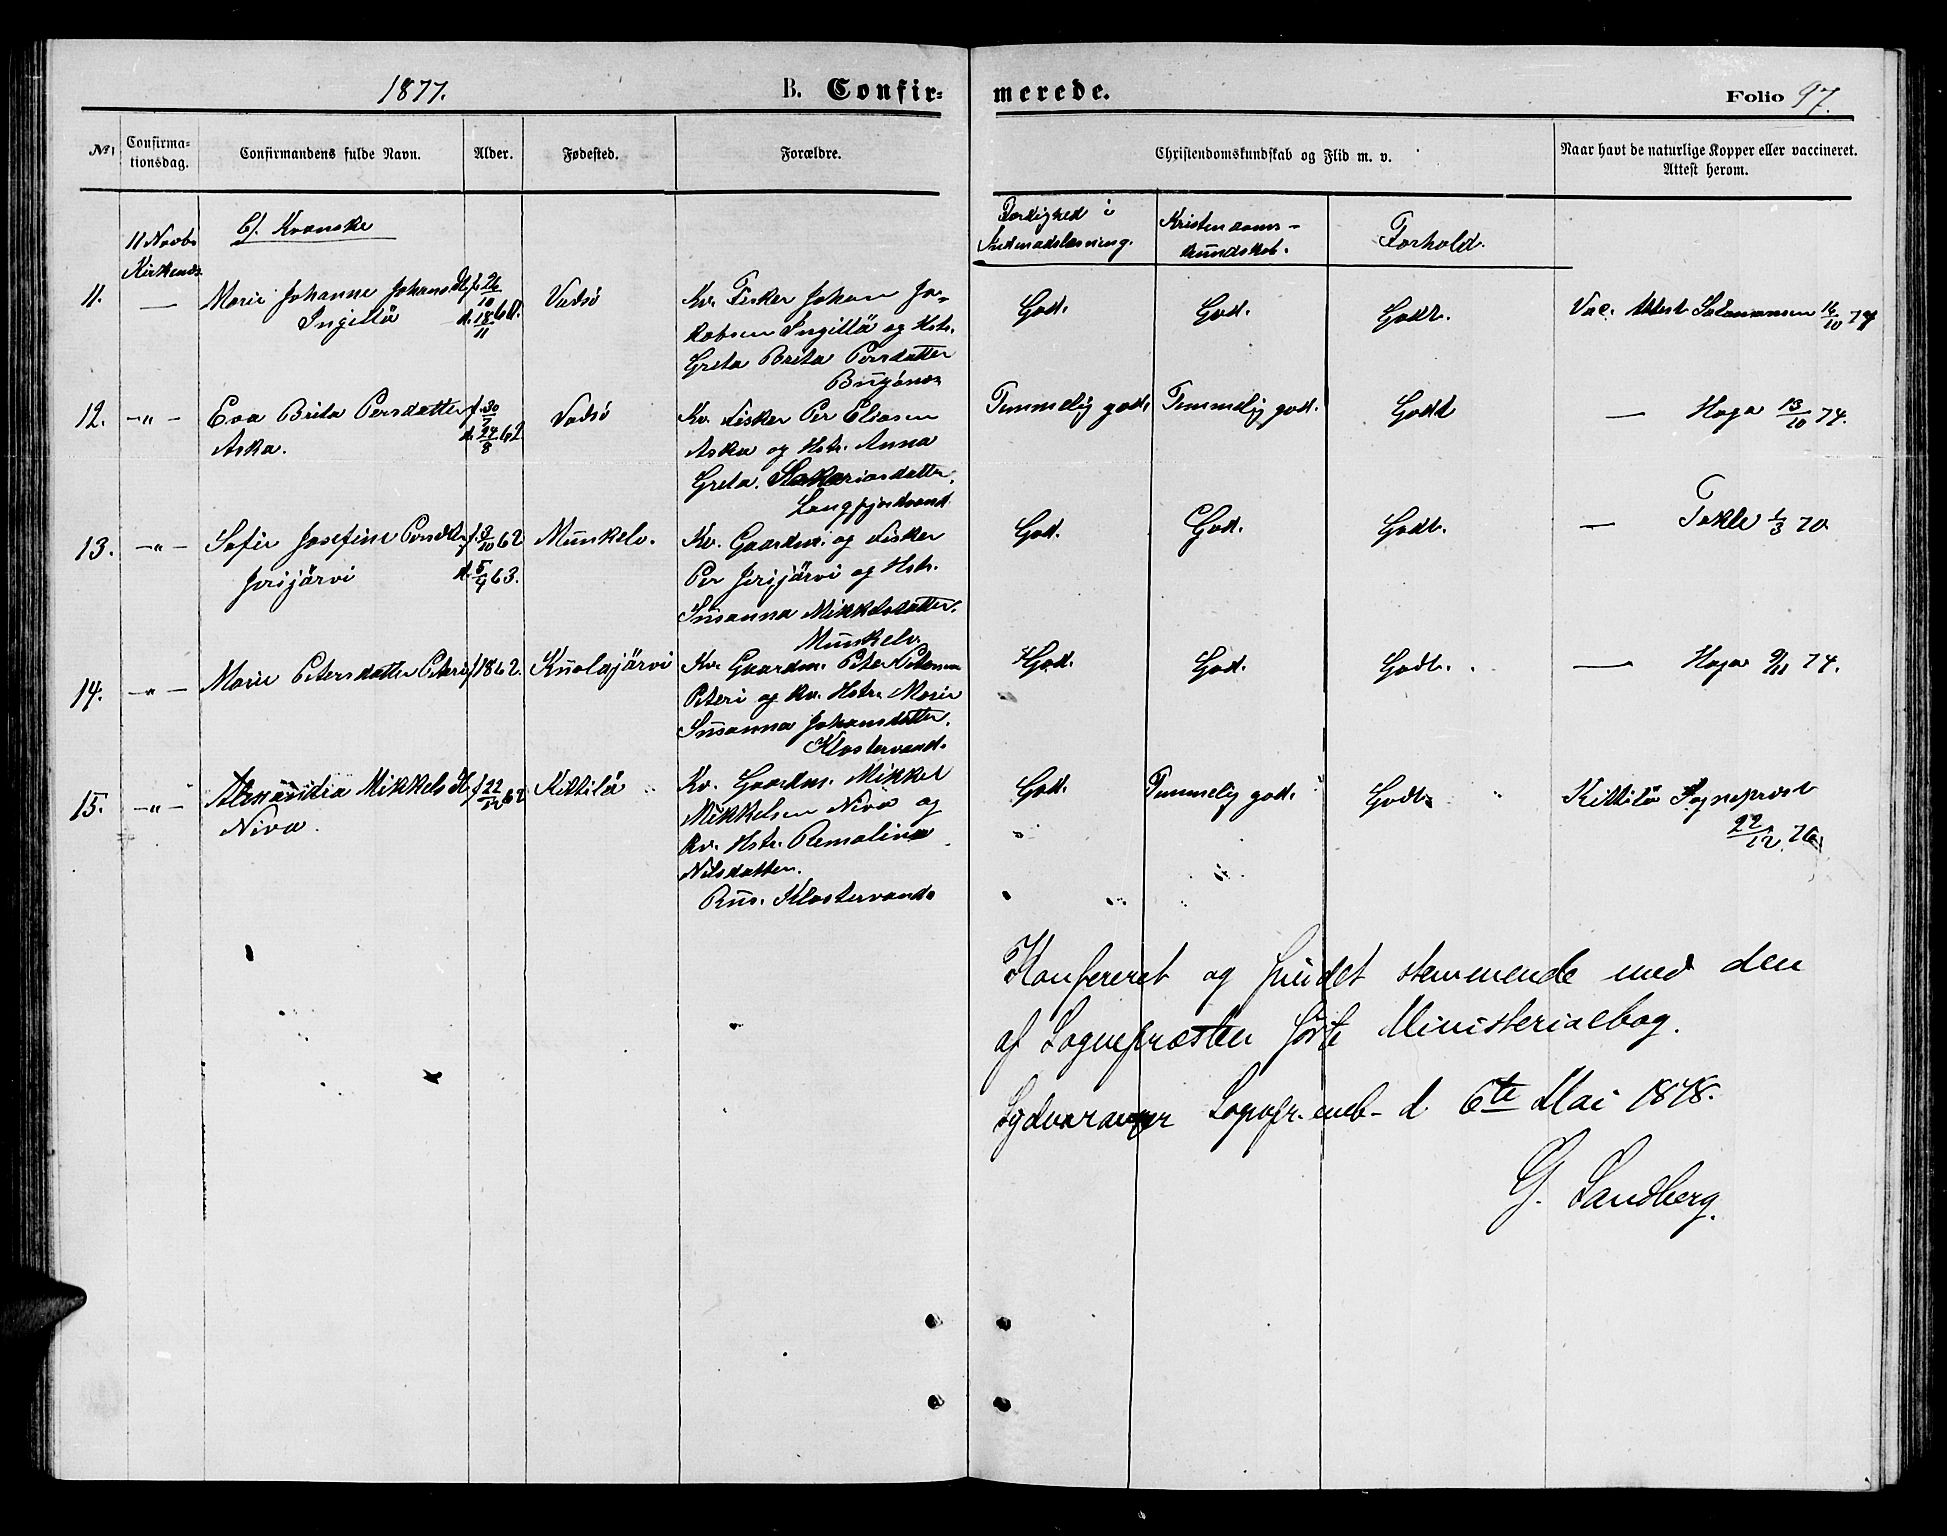 1877. B. Confir-
merede. Folio 97.
No. Confirma-
tionsdag. Confirmandens fulde Navn. Alder. Fødested. Forældre. Christendomskundskab og Flid m. v. Naar havt de naturlige Kopper eller vaccineret.
Attest herom.
11 Novbr
Kirkenæs
b/. Kvænske
Færdighed i
Indenadslæsning. Kristendoms-
kundskab. Forhold.
11. — Marie Johanne Johansdtr
Ingillä
f. 26/10
d. 18/11 60.
Vadsø
Kv. Fisker Johan Ja-
kobsen Ingillä og Hstr.
Greta Brita Persdatter
Bugönæs
God. God. Godt. Vac. Attest Salamonsen 14/10 74
12. —„— Eva Brita Persdatter
Aska.
f. 30/7
d. 24/8 62
Vadsø
Kv. Fisker Per Eliasen
Aska og Hstr. Anna
Greta Sakariasdatter.
Langfjordvand
Temmelig god. Temmelig god. Godt — Haga 13/10 74.
13. —„— Sofie Josefine Persdtr
Jerijärvi
f. 3/10 62
d. 5/9 63.
Munkelv.
Kv. Gaardm. og Fisker
Per Jerijärvi og Hstr.
Susanna Mikkelsdatter.
Munkelv.
God. God. Godt. — Takle 1/3 70.
14. —„— Marie Petersdatter Peteri f 1862. Kuolajärvi
Kv. Gaardm. Peter Petersen
Peteri og kv. Hstr. Marie
Susanna Johansdatter.
Klostervand.
God. God. Godt. — Haga 9/11 74.
15. —„— Alexandra Mikkelsdtr
Niva.
f 22/12 62
Kittilä
Kv. Gaardm. Mikkel
Mikkelsen Niva og
kv. Hstr. Remalina
Nilsdatter.
Rus. Klostervand
God. Temmelig god. Godt. Kittilä Sogneprest
22/12 76
Konfereret og fundet stemmende med den
af Sognepræsten førte Ministerialbog.
Sydvaranger Sognepr.emb- d 6te Mai 1878.
G. Sandberg.